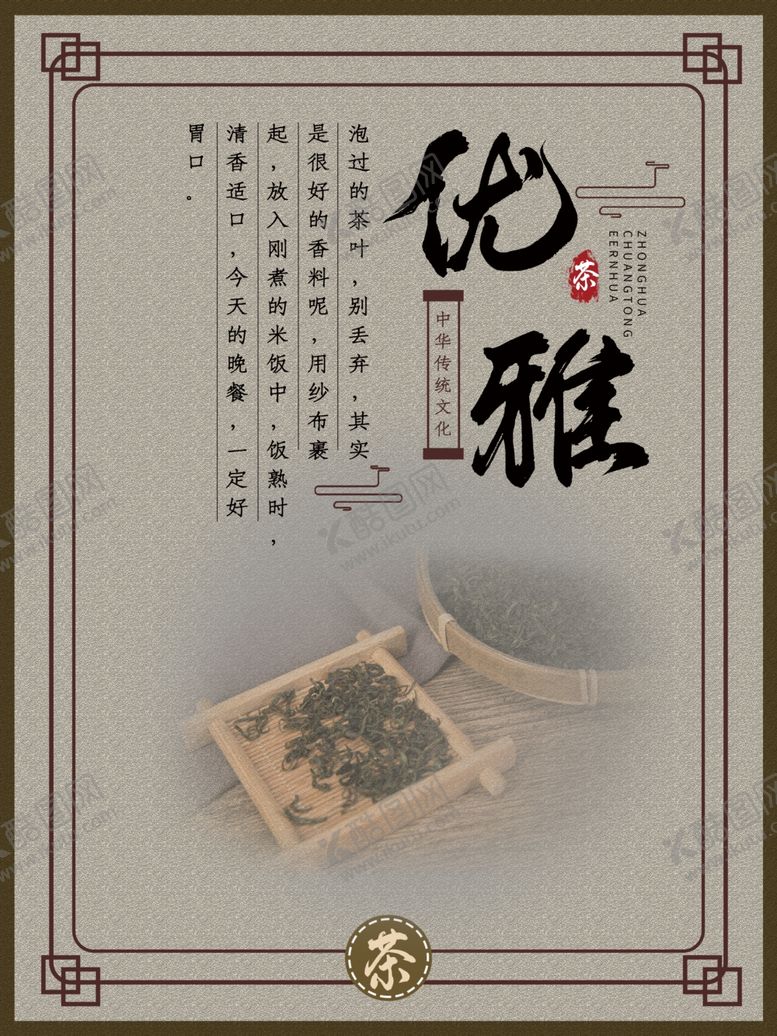 优雅
茶
ZHONGHUA
CHUANGTONG
EERNHUA
中华传统文化
泡过的茶叶，别丢弃，其实
是很好的香料呢，用纱布裹
起，放入刚煮的米饭中，饭熟时，
清香适口，今天的晚餐，一定好
胃口。
茶
酷图网
www.ikutu.com